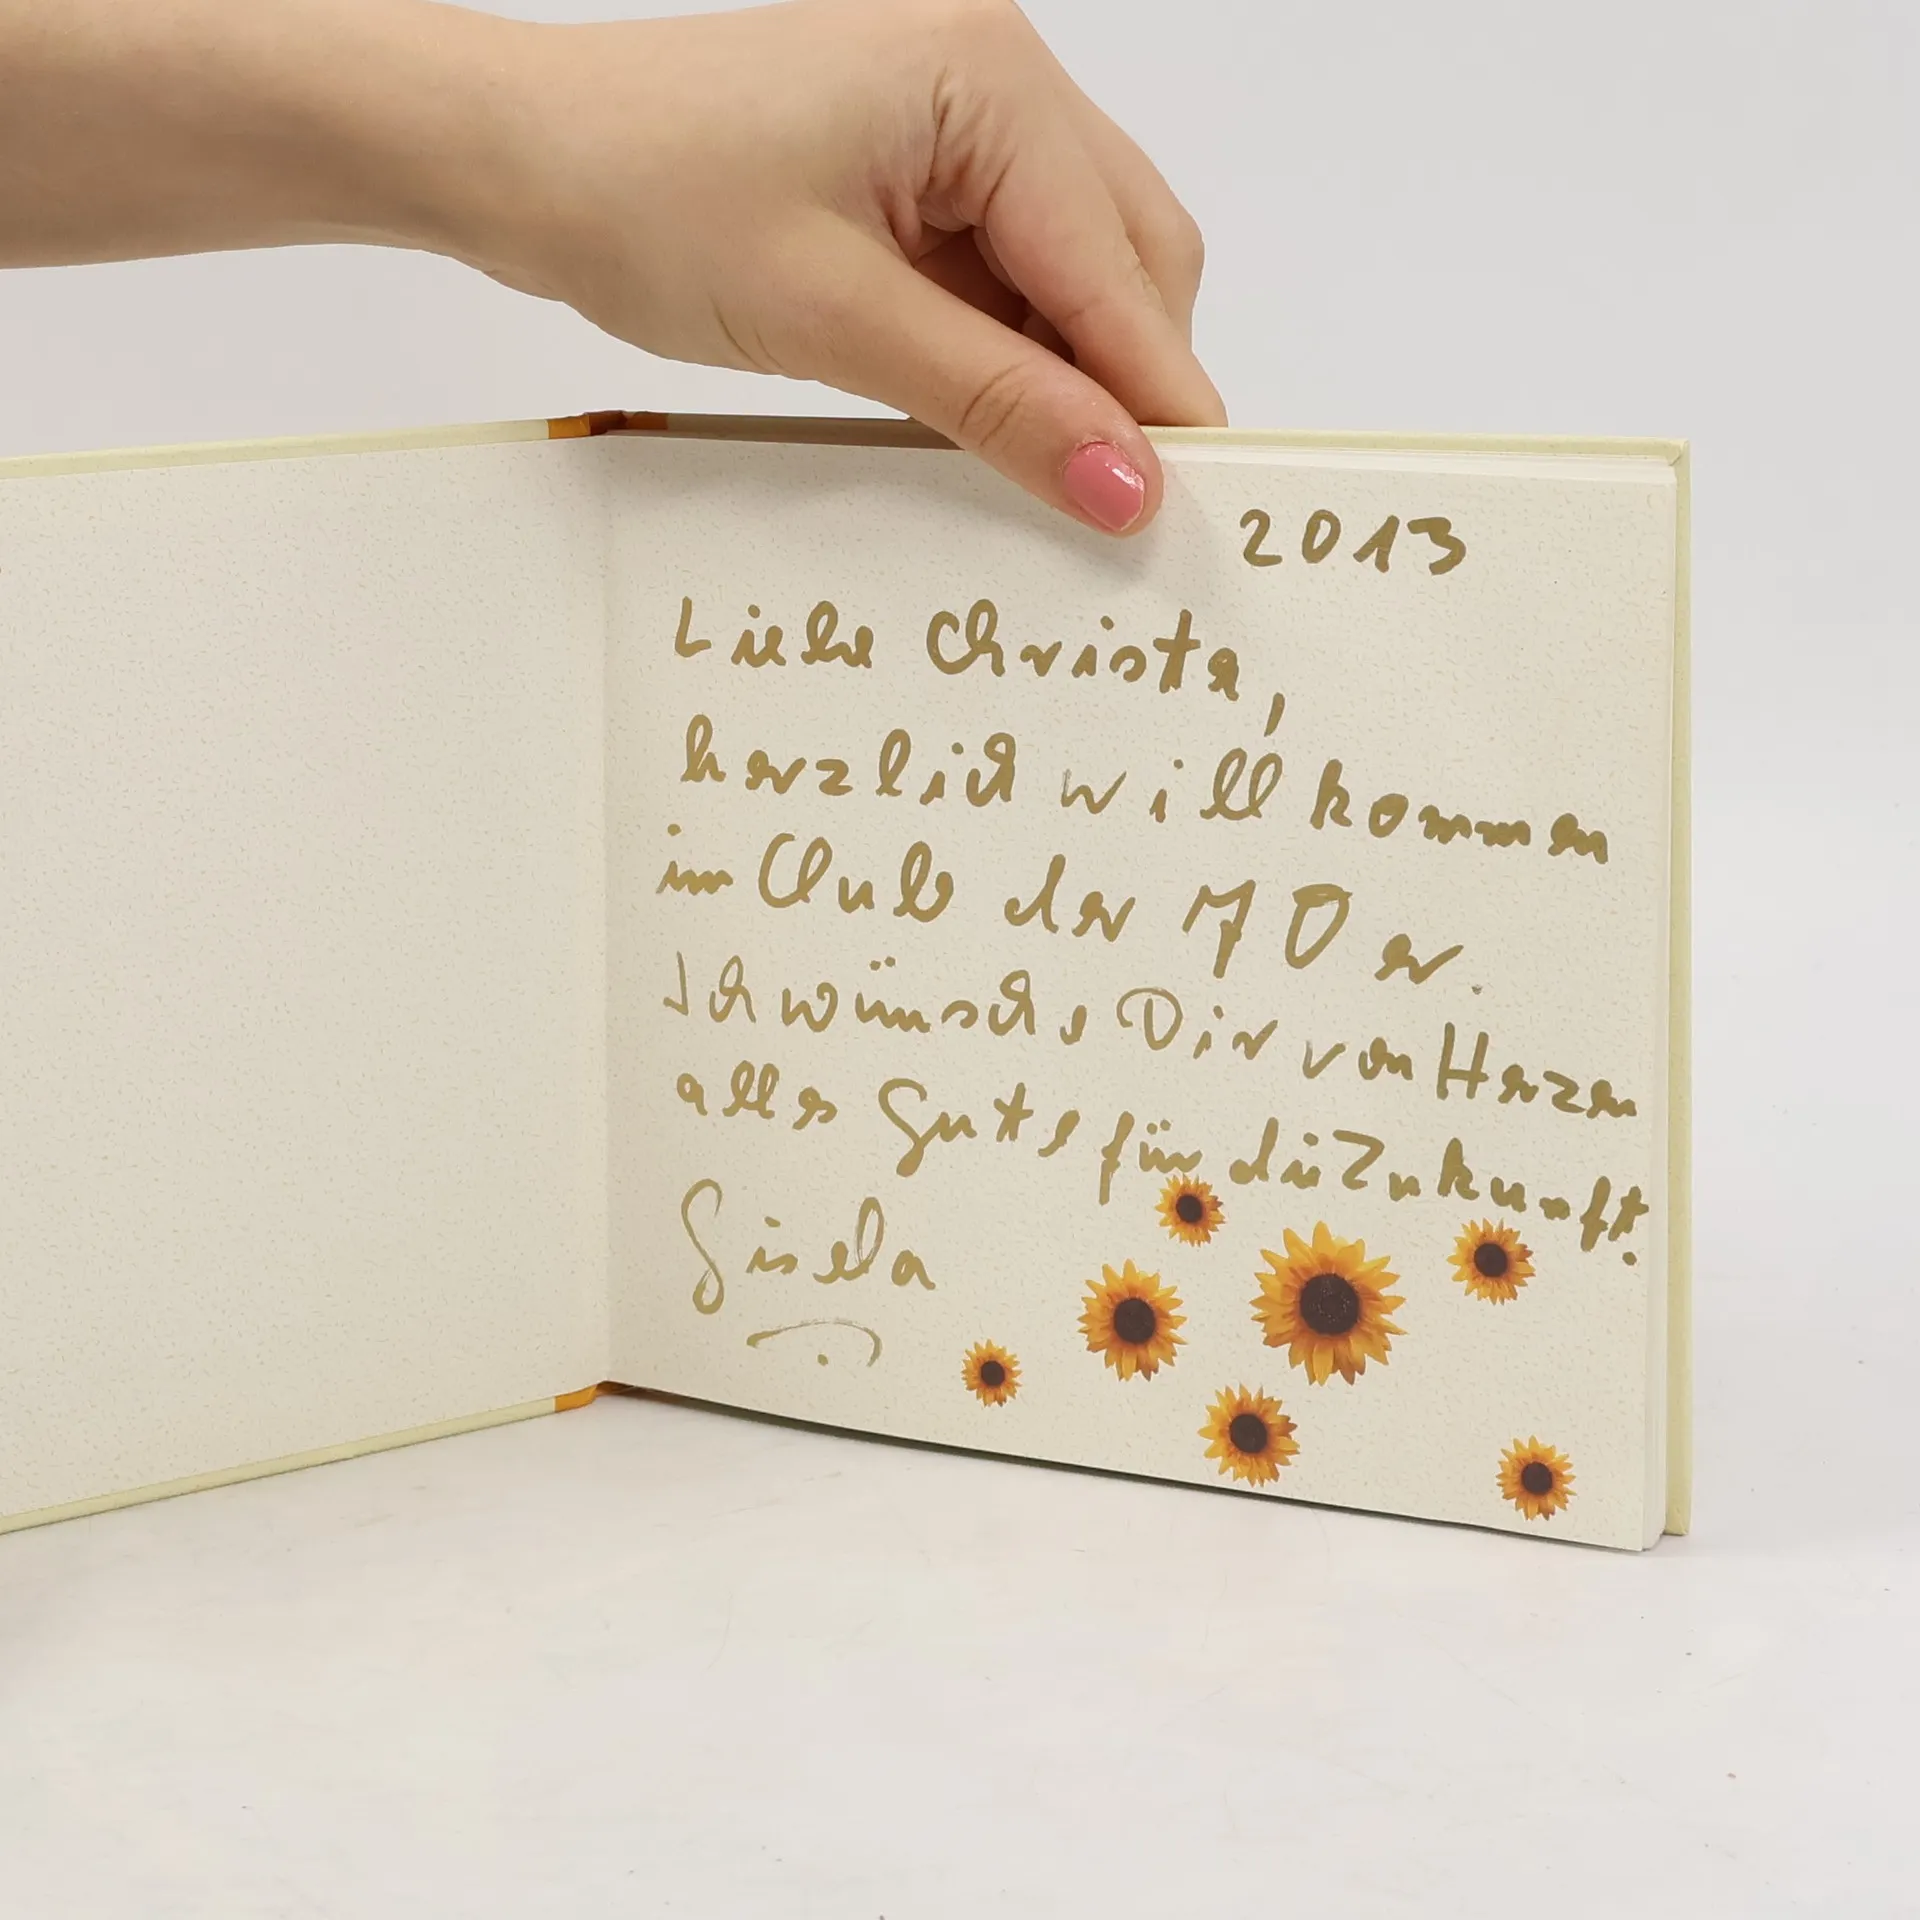 2013
Liebe Christa,
herzlich willkommen
im Club der 70er.
Ich wünsche Dir von Herzen
alles Gute für die Zukunft.
Gisela